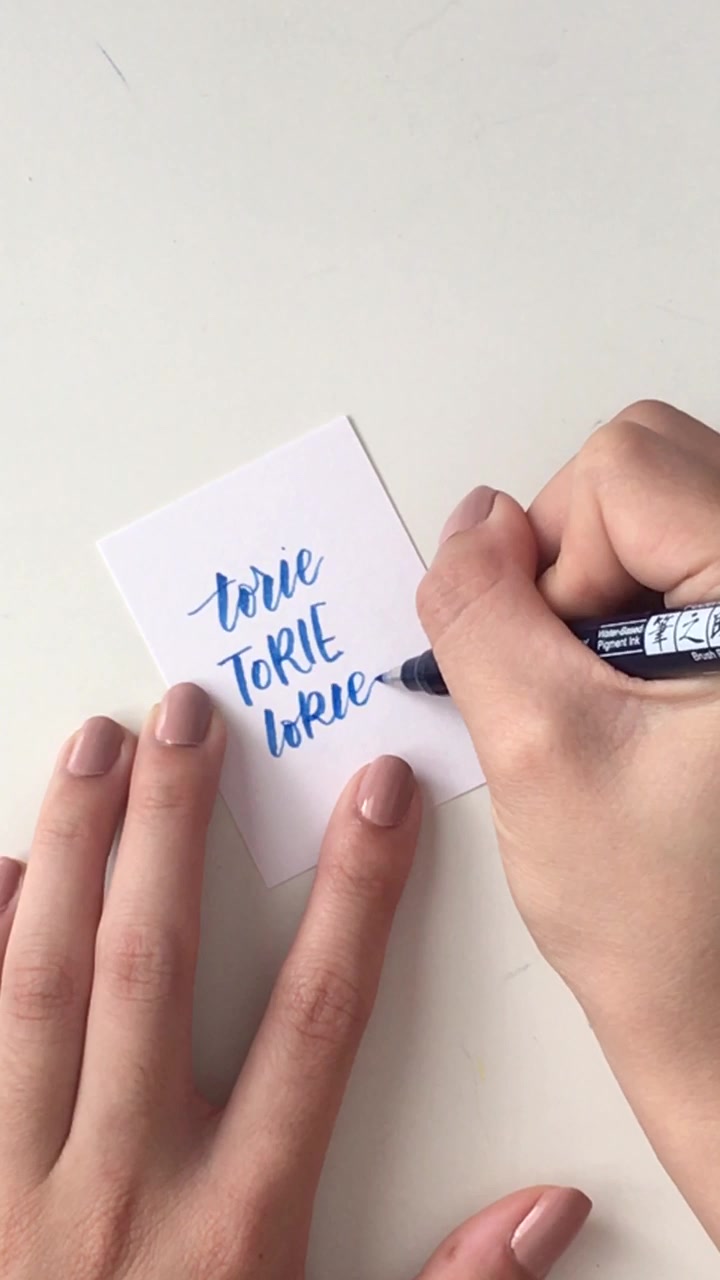 torie
ToRIE
loRie
Water-Based
Pigment Ink
筆之
Brush